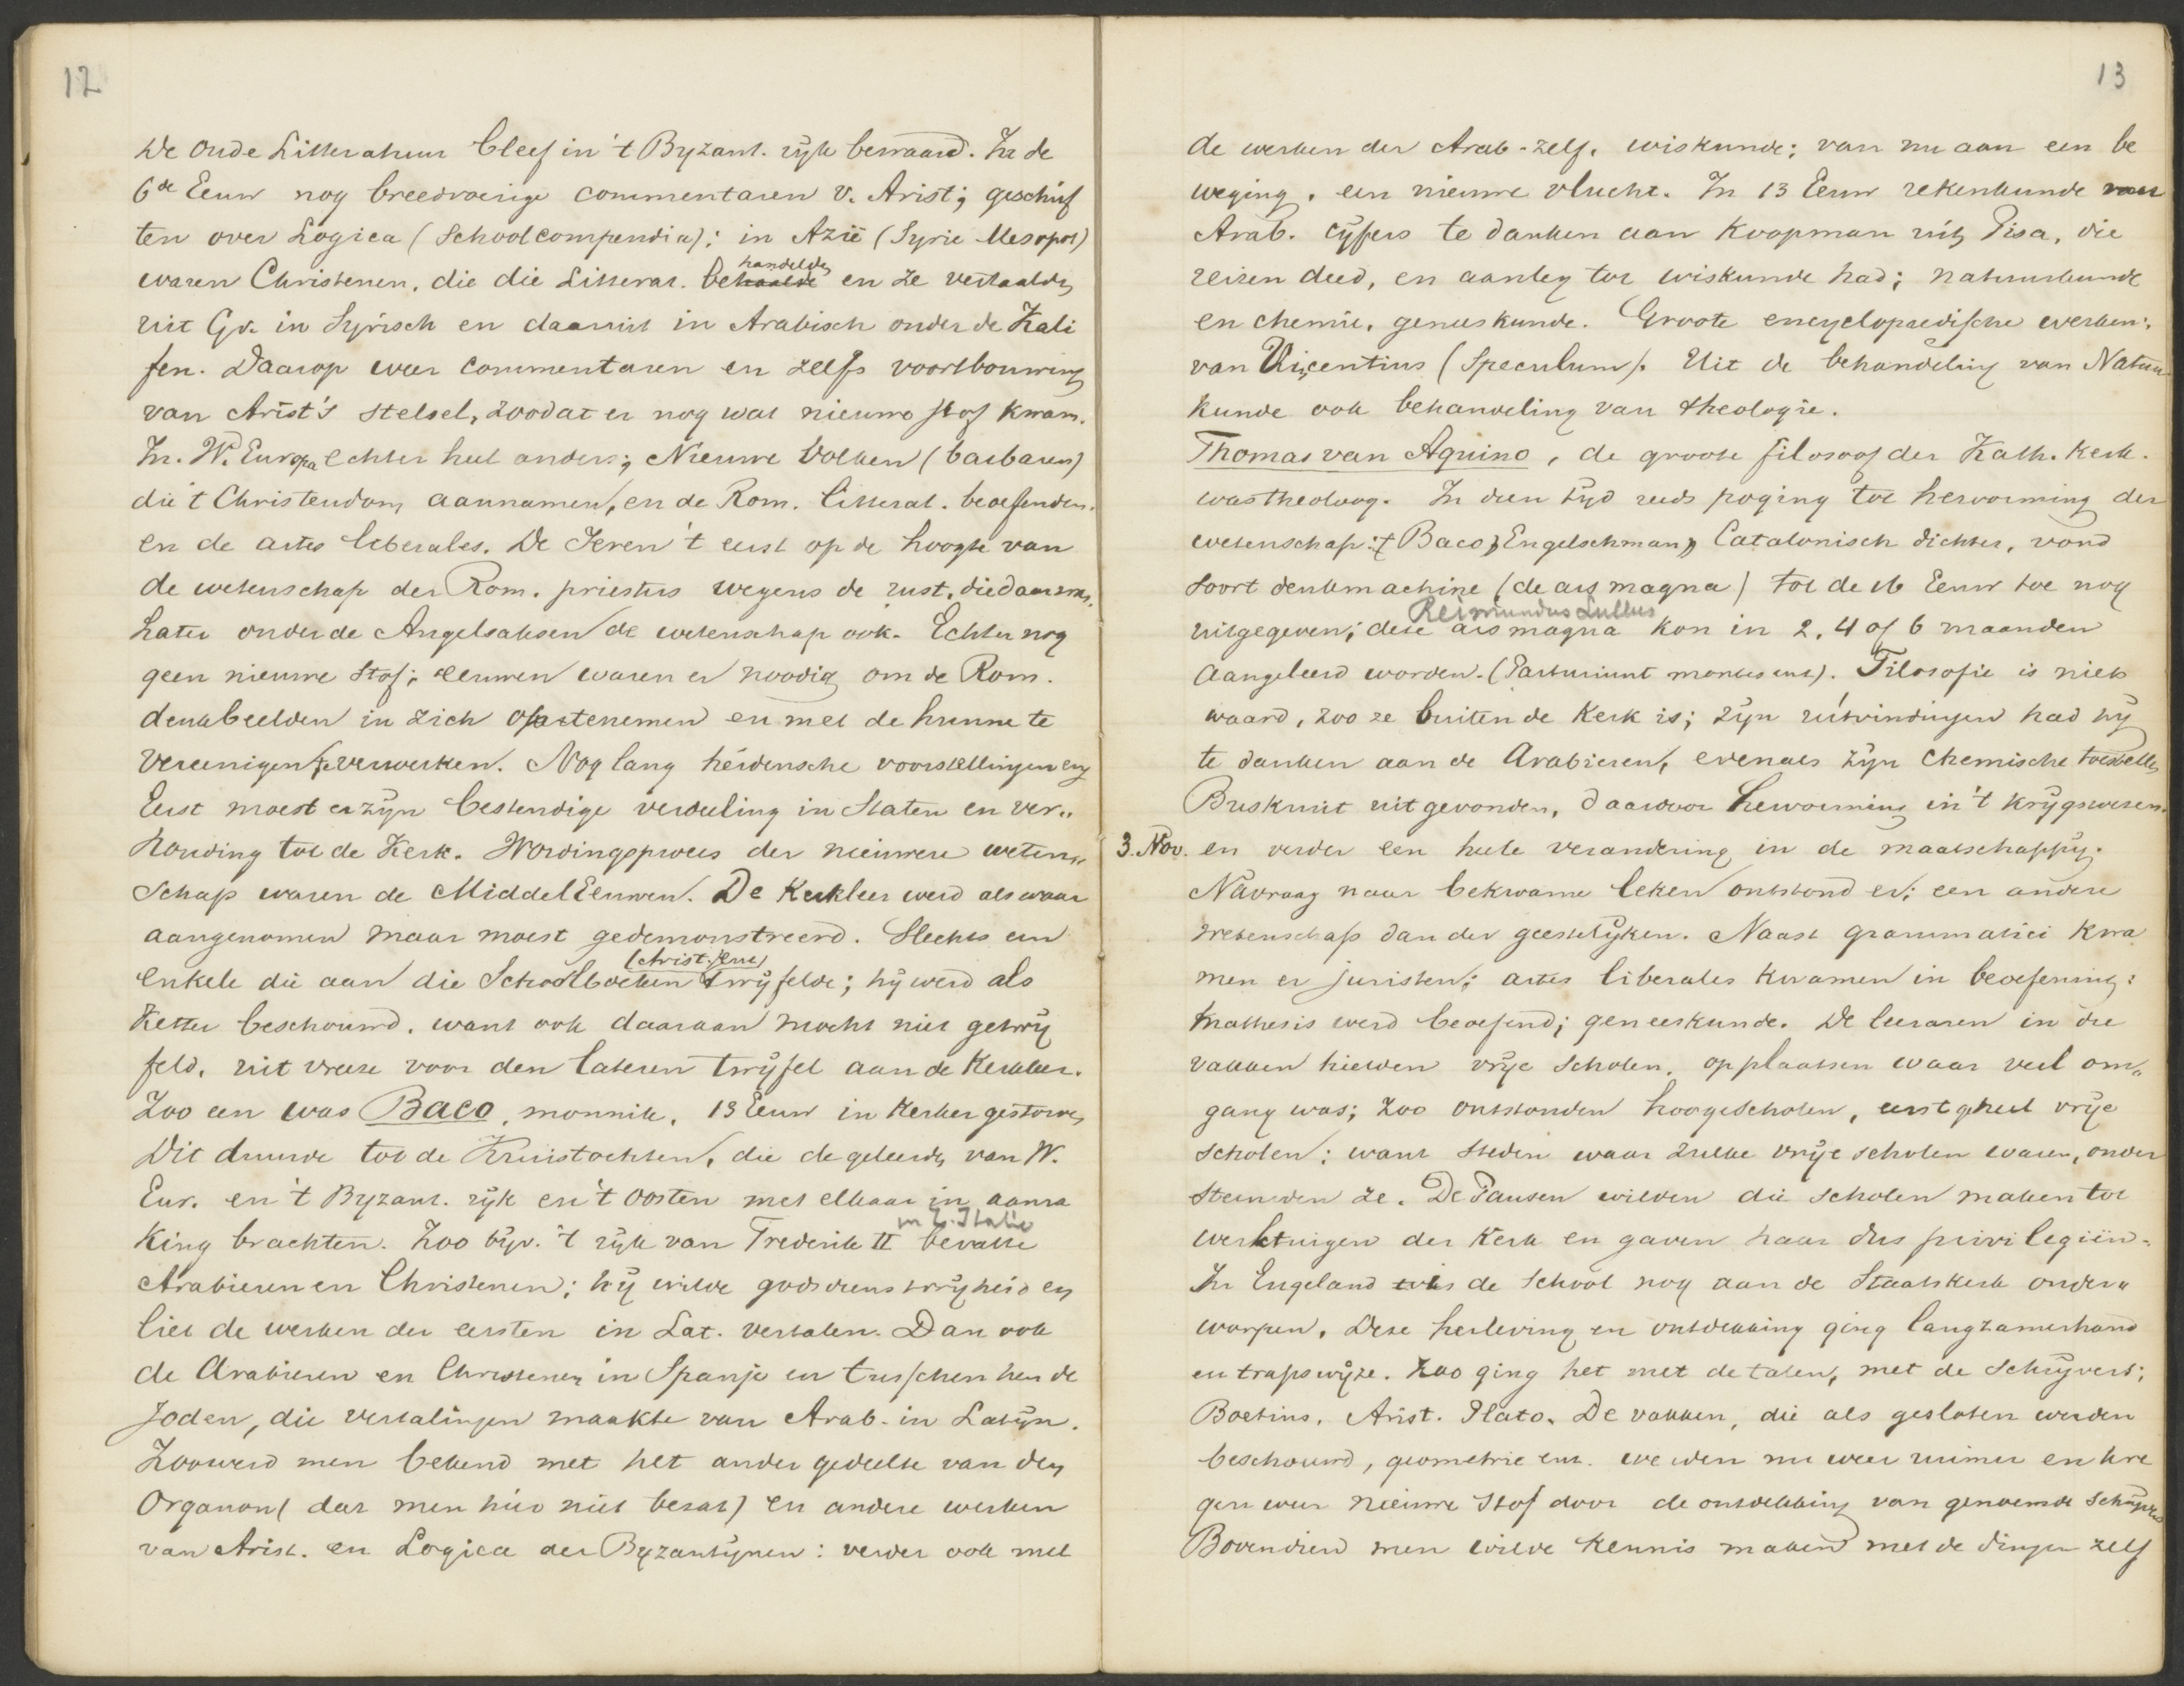 12
De oude Litteratuur bleef in 't Byzant. rijk bewaard. In de
6de Eeuw nog breedvoerige commentaren v. Arist; geschrif
ten over Logica (Schoolcompendia); in Azië (Syrie Mesopot)
handelde
waren Christenen, die die Litterat. behaalde en ze vertaalde
uit Gr. in Syrisch en daaruit in Arabisch onder de Kali
fen. Daarop weer commentaren en zelfs voortbouwing
van Arist's stelsel, zoodat er nog wat nieuwe stof kwam.
In W. Europa echter heel anders; Nieuwe Volken (barbaren)
die 't Christendom aannamen, en de Rom. litterat. beoefenden.
en de artes liberales. De Ieren 't eerst op de hoogte van
de wetenschap der Rom. priesters wegens de rust, die daar was.
Later onder de Angelsaksen de wetenschap ook. Echter nog
geen nieuwe stof; eeuwen waren er noodig om de Rom.
denkbeelden in zich op te nemen en met de hunne te
vereenigen te verwerken. Nog lang heidensche voorstellingen enz
Eerst moest er zijn bestendige verdeeling in Staten en ver„
houding tot de Kerk. Wordingsproces der nieuwere weten„
schap waren de MiddelEeuwen. De Kerkleer werd als waar
aangenomen maar moest gedemonstreerd. Slechts een
(christ. leer)
enkele die aan die Schoolboeken twijfelde; hij werd als
Ketter beschouwd, want ook daaraan mocht niet getwij
feld, uit vreeze voor den lateren twijfel aan de Kerkleer.
Zoo een was Baco, monnik, 13 Eeuw in Kerker gestorven
Dit duurde tot de Kruistochten, die de geleerde van W.
Eur. en 't Byzant. rijk en 't Oosten met elkaar in aanra
in Z. Italie
king brachten. Zoo bijv. 't rijk van Frederik II bevatte
Arabieren en Christenen; hij wilde godsdienstvrijheid en
liet de werken der eersten in Lat. vertalen. Dan ook
de Arabieren en Christenen in Spanje en tusschen hen de
Joden, die vertalingen maakte van Arab. in Latijn.
Zoo werd men bekend met het ander gedeelte van den
Organon (dat men hier niet bezat) en andere werken
van Arist. en Logica der Byzantijnen: verder ook met
13
de werken der Arab. zelf. wiskunde; van nu aan een be
weging, een nieuwe vlucht. In 13 Eeuw rekenkunde met
Arab. cijfers te danken aan Koopman uit Pisa, die
reizen deed, en aanleg tot wiskunde had; natuurkunde
en chemie, geneeskunde. Groote encyclopaedische werken:
van Vincentius (Speculum). Uit de behandeling van Natuur
kunde ook behandeling van theologie.
Thomas van Aquino, de groote filosoof der Kath. Kerk.
was theoloog. In dien tijd reeds poging tot hervorming der
wetenschap: Baco, Engelschman, Catalonisch dichter, vond
soort denkmachine (de ars magna) tot de 16 Eeuw toe nog
Reimundus Lullus
uitgegeven; deze ars magna kon in 2, 4 of 6 maanden
aangeleerd worden. (Parturiunt montes enz). Filosofie is niets
waard, zoo ze buiten de Kerk is; zijn uitvindingen had hij
te danken aan de Arabieren, evenals zijn chemische toestellen
Buskruit uitgevonden, daardoor hervorming in 't krijgswezen.
3. Nov. en verder een heele verandering in de maatschappij.
Navraag naar bekwame leken ontstond er; een andere
wetenschap dan der geestelijken. Naast grammatici kwa
men er juristen; artes liberales kwamen in beoefening:
mathesis werd beoefend; geneeskunde. De leeraren in die
vakken hielden vrije scholen, op plaatsen waar veel om„
gang was; zoo ontstonden hoogescholen, eerst geheel vrije
scholen; want steden waar zulke vrije scholen waren, onder
steunden ze. De Pausen wilden die scholen maken tot
werktuigen der Kerk en gaven haar dus privilegiën.
In Engeland is de School nog aan de Staatskerk onder„
worpen. Deze herleving en ontdekking ging langzamerhand
en trapswijze. Zoo ging het met de talen, met de Schrijvers;
Boetius, Arist. Plato. De vakken, die als gesloten werden
beschouwd, geometrie enz. werden nu weer ruimer en kre
gen weer nieuwe stof door de ontdekking van genoemde Schrijvers
Bovendien men wilde kennis maken met de dingen zelf